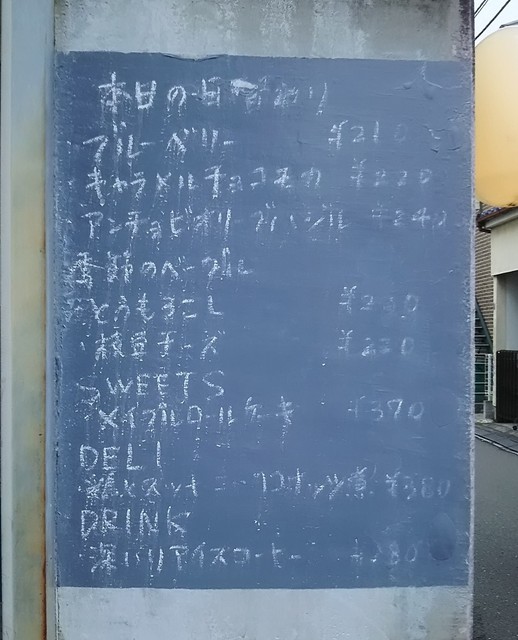 本日の日替わり
・ブルーベリー ¥210
・キャラメルチョコモカ ¥220
・アンチョビオリーブバジル ¥240
季節のベーグル
・とうもろこし
・枝豆チーズ ¥220
SWEETS
・メイプルロールケーキ ¥370
DELI
ココナッツ ¥380
DRINK
・深いりアイスコーヒー